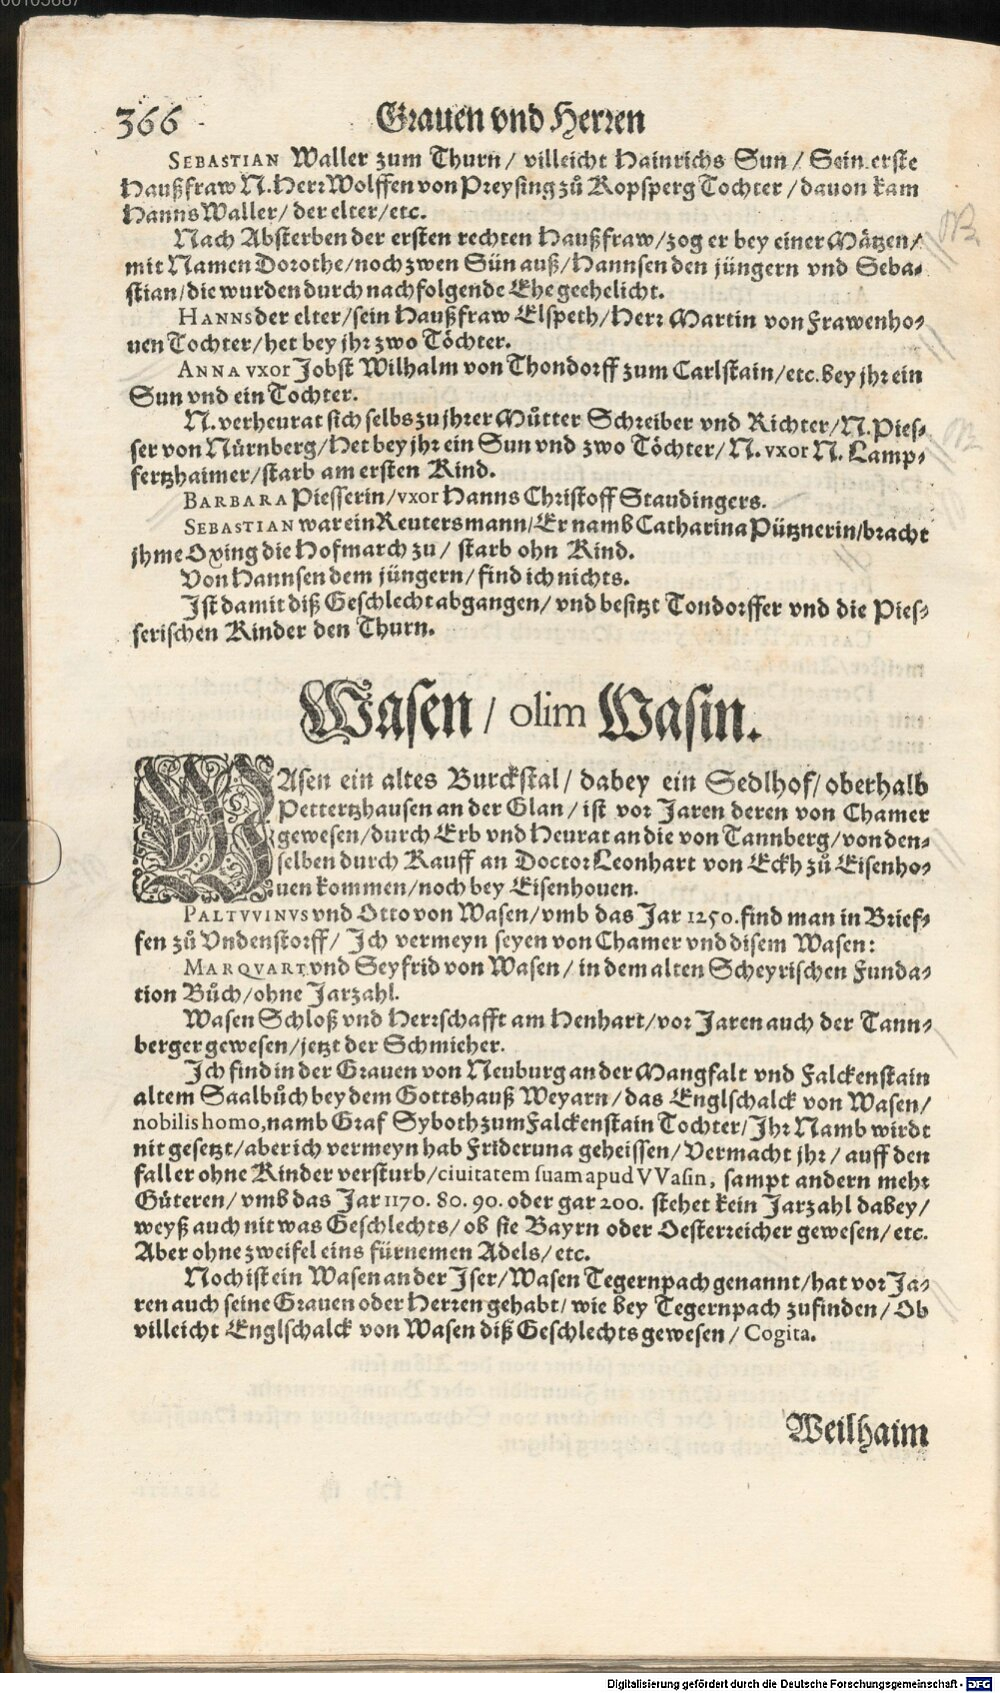 366 Grauen vnd Herren
SEBASTIAN Waller zum Thurn / villeicht Hainrichs Sun / Sein erste
Haußfraw N. Herr Wolffen von Preysing zů Kopsperg Tochter / dauon kam
Hanns Waller / der elter / etc.
Nach Absterben der ersten rechten Haußfraw / zog er bey einer Mätzen /
mit Namen Dorothe / noch zwen Sün auß / Hannsen den jüngern vnd Seba-
stian / die wurden durch nachfolgende Ehe geehelicht.
HANNS der elter / sein Haußfraw Elspeth / Herr Martin von Frawenho-
uen Tochter / het bey jhr zwo Töchter.
ANNA vxor Jobst Wilhalm von Thondorff zum Carlstain / etc. bey jhr ein
Sun vnd ein Tochter.
N. verheurat sich selbs zu jhrer Můtter Schreiber vnd Richter / N. Pies-
ser von Nürnberg / Het bey jhr ein Sun vnd zwo Töchter / N. vxor N. Lamp-
fertzhaimer / starb am ersten Kind.
BARBARA Piesserin / vxor Hanns Christoff Staudingers.
SEBASTIAN war ein Reutersmann / Er namb Catharina Pütznerin / bracht
jhme Oxing die Hofmarch zu / starb ohn Kind.
Von Hannsen dem jüngern / find ich nichts.
Ist damit diß Geschlecht abgangen / vnd besitzt Tondorffer vnd die Pies-
serischen Kinder den Thurn.
Wasen / olim Wasin.
WAsen ein altes Burckstal / dabey ein Sedlhof / oberhalb
Pettertzhausen an der Glan / ist vor Jaren deren von Chamer
gewesen / durch Erb vnd Heurat an die von Tannberg / von den-
selben durch Kauff an Doctor Leonhart von Eckh zů Eisenho-
uen kommen / noch bey Eisenhouen.
PALTVVINVS vnd Otto von Wasen / vmb das Jar 1250. find man in Brief-
fen zů Vndenstorff / Ich vermeyn seyen von Chamer vnd disem Wasen:
MARQVART vnd Seyfrid von Wasen / in dem alten Scheyrischen Funda-
tion Bůch / ohne Jarzahl.
Wasen Schloß vnd Herrschafft am Henhart / vor Jaren auch der Tann-
berger gewesen / jetzt der Schmicher.
Ich find in der Grauen von Neuburg an der Mangfalt vnd Falckenstain
altem Saalbůch bey dem Gottshauß Weyarn / das Englschalck von Wasen /
nobilis homo, namb Graf Syboth zum Falckenstain Tochter / Ihr Namb wirdt
nit gesetzt / aber ich vermeyn hab Friderůna geheissen / Vermacht jhr / auff den
fall er ohne Kinder versturb / ciuitatem suam apud VVasin, sampt andern mehr
Güteren / vmb das Jar 1170. 80. 90. oder gar 200. stehet kein Jarzahl dabey /
weyß auch nit was Geschlechts / ob sie Bayrn oder Oesterreicher gewesen / etc.
Aber ohne zweifel eins fürnemen Adels / etc.
Noch ist ein Wasen an der Iser / Wasen Tegernpach genannt / hat vor Ja-
ren auch seine Grauen oder Herren gehabt / wie bey Tegernpach zufinden / Ob
villeicht Englschalck von Wasen diß Geschlechts gewesen / Cogita.
Weilhaim
Digitalisierung gefördert durch die Deutsche Forschungsgemeinschaft - DFG